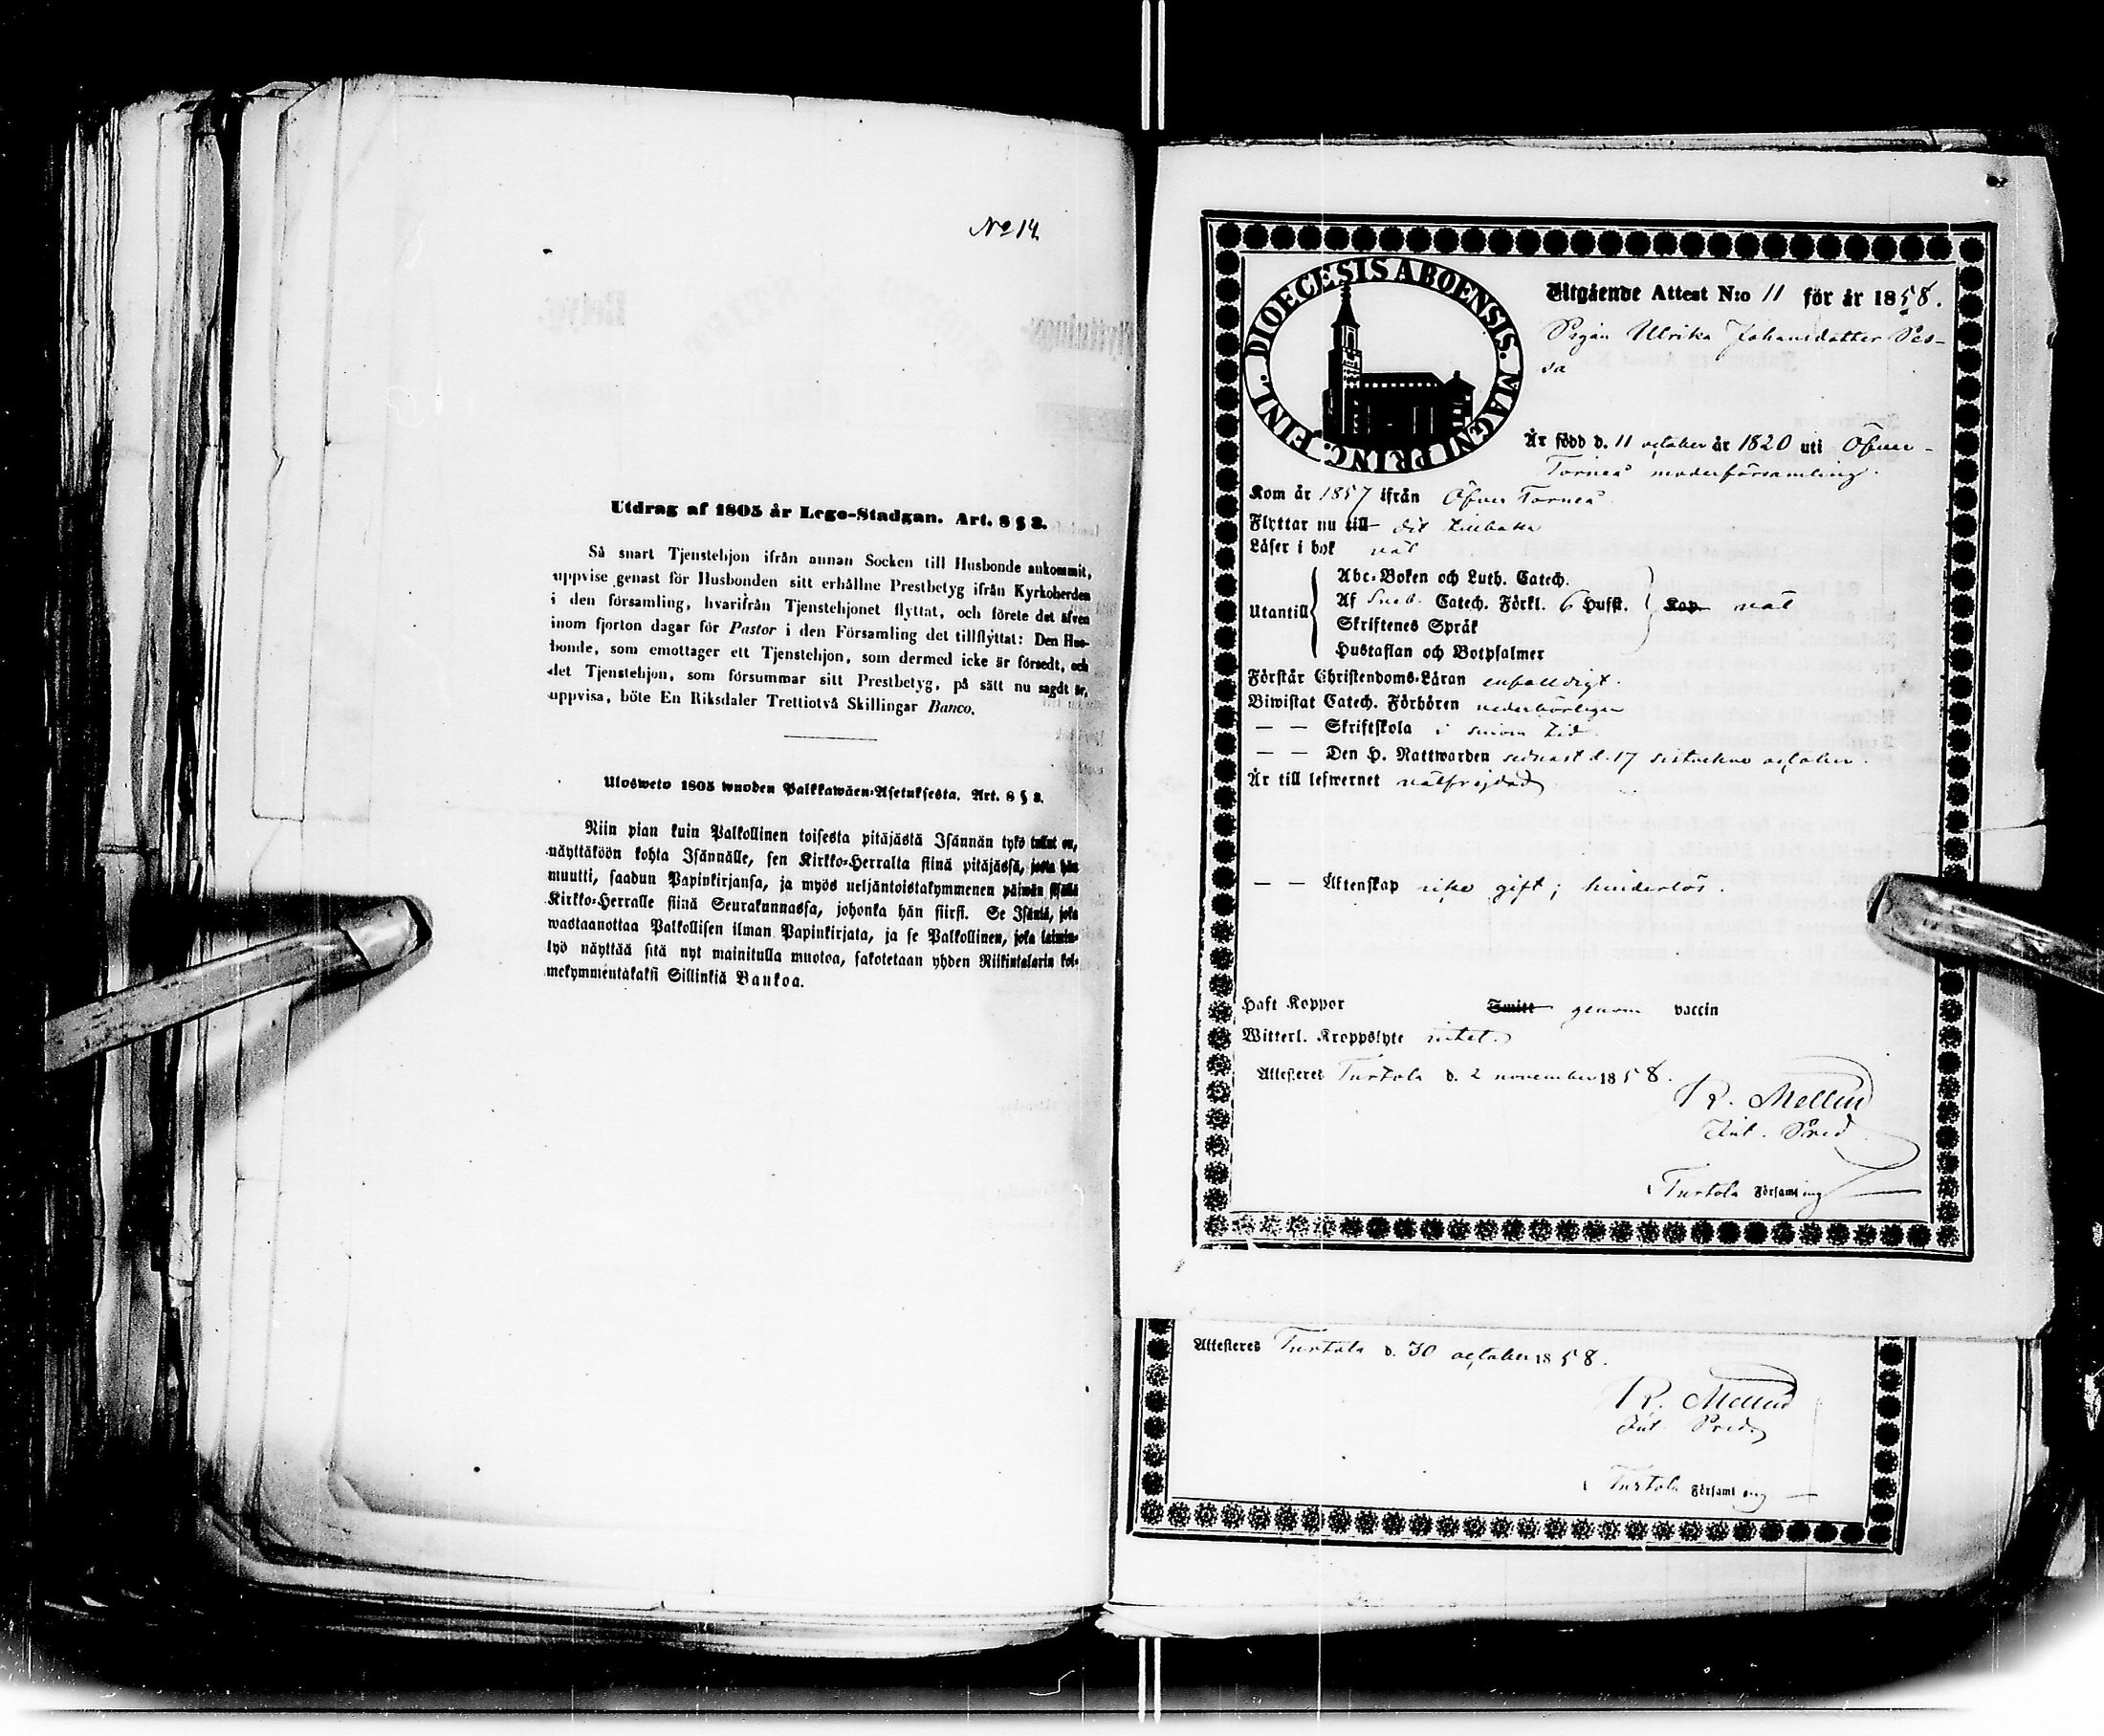 No 14.
Utdrag af 1805 år Lego-Stadgan. Art. 8 § 3.
Så snart Tjenstehjon ifrån annan Socken till Husbonde ankommit,
uppvise genast för Husbonden sitt erhållne Prestbetyg ifrån Kyrkoherden
i den församling, hvarifrån Tjenstehjonet flyttat, och förete det äfven
inom fjorton dagar för Pastor i den Församling det tillflyttat: Den Hus-
bonde, som emottager ett Tjenstehjon, som dermed icke är försedt, och
det Tjenstehjon, som försummar sitt Prestbetyg, på sätt nu sagdt är,
uppvisa, böte En Riksdaler Trettiotvå Skillingar Banco.
Ulosweto 1805 wuoden Palkkawäen-Asetuksesta. Art. 8 § 3.
Niin pian kuin Palkollinen toisesta pitäjästä Isännän tykö tullut on,
näyttäköön kohta Isännälle, sen Kirkko-Herralta siinä pitäjässä, josta hän
muutti, saadun Papinkirjansa, ja myös neljäntoistakymmenen päiwän sisällä
Kirkko-Herralle siinä Seurakunnassa, johonka hän siirsi. Se Isäntä, joka
wastaanottaa Palkollisen ilman Papinkirjata, ja se Palkollinen, joka laimin-
lyö näyttää sitä nyt mainitulla muotoa, sakotetaan yhden Riikintalarin kol-
mekymmentäkaksi Sillinkiä Bankoa.
FINL. DIOECESIS ABOENSIS. MAGNI PRINC.
Utgående Attest N:o 11 för år 1858.
Pigan Ulrika Johansdotter Pes-
sa
Är född d. 11 october år 1820 uti Öfver-
Torneå moderförsamling.
Kom år 1857 ifrån Öfver Torneå
Flyttar nu till dit tillbaka
Läser i bok väl
Abc-Boken och Luth. Catech.
Utantill Af Sveb. Catech. Förkl. 6 Hufst. Kap väl
Skriftenes Språk
Hustaflan och Botpsalmer
Förstår Christendoms-Läran enfaldigt.
Biwistat Catech. Förhören vederbörligen
— — Skriftskola i sinom tid.
— — Den H. Nattwarden sednast d. 17 sistvekne october.
Är till lefwernet välfrejdad
— — Äktenskap icke gift; hinderlös.
Haft Koppor Smitt genom vaccin
Witterl. Kroppslyte intet.
Attesteres Turtola d. 2 november 1858.
R. Mellin
Pred.
i Turtola Församling
Attesteres Turtola d. 30 october 1858.
R. Mellin
Pred.
i Turtola Församling